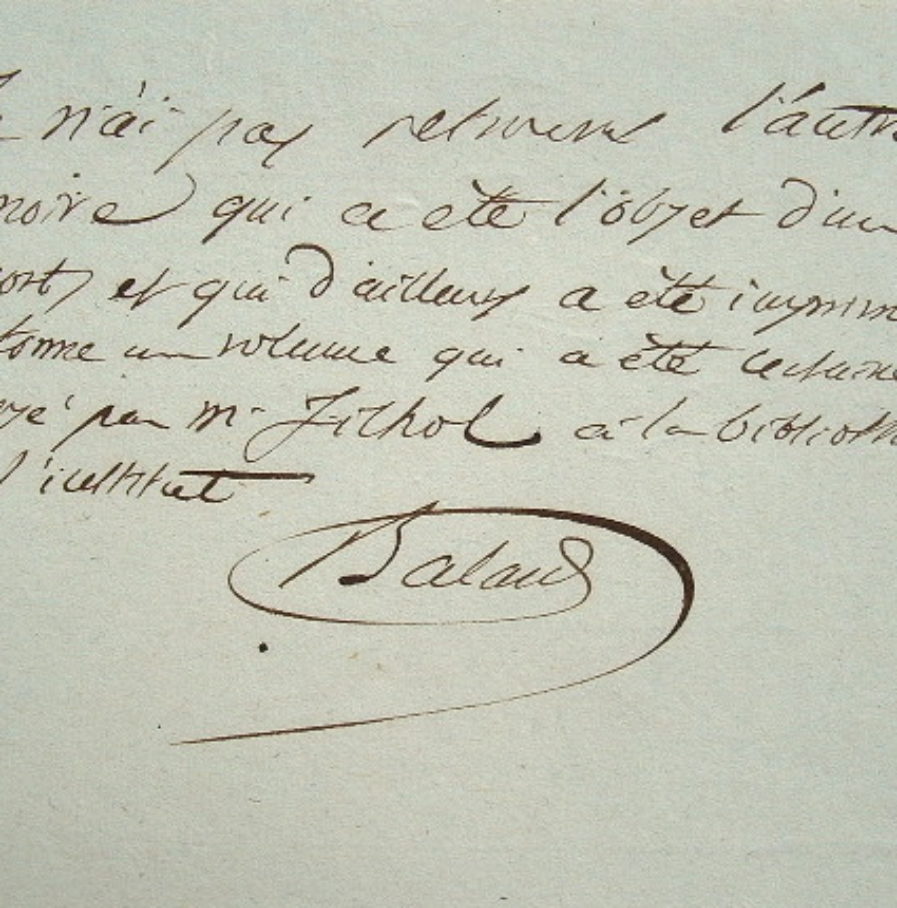 n'ai pas retrouvé l'autre
moire qui a été l'objet d'un
port, et qui d'ailleurs a été imprim
forme un volume qui a été
yé par Mr Filhol à la biblioth
l'institut
Balard